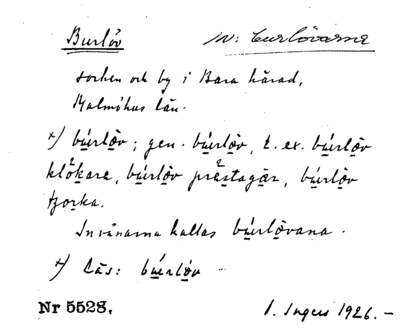 Burlöv inv: burlövarne
socken och by i Bara härad,
Malmöhus län.
x) bu̱rlö̱v; gen. bu̱rlö̱v, t. ex. bu̱rlö̱v
klö̱kare, bu̱rlö̱v prä̱stagå̱r, bu̱rlö̱v
tjo̱rka.
Invånarna kallas bu̱rlö̱vana.
x) Läs: bu̱rlo̱v
Nr 5528. I. Ingers 1926. –